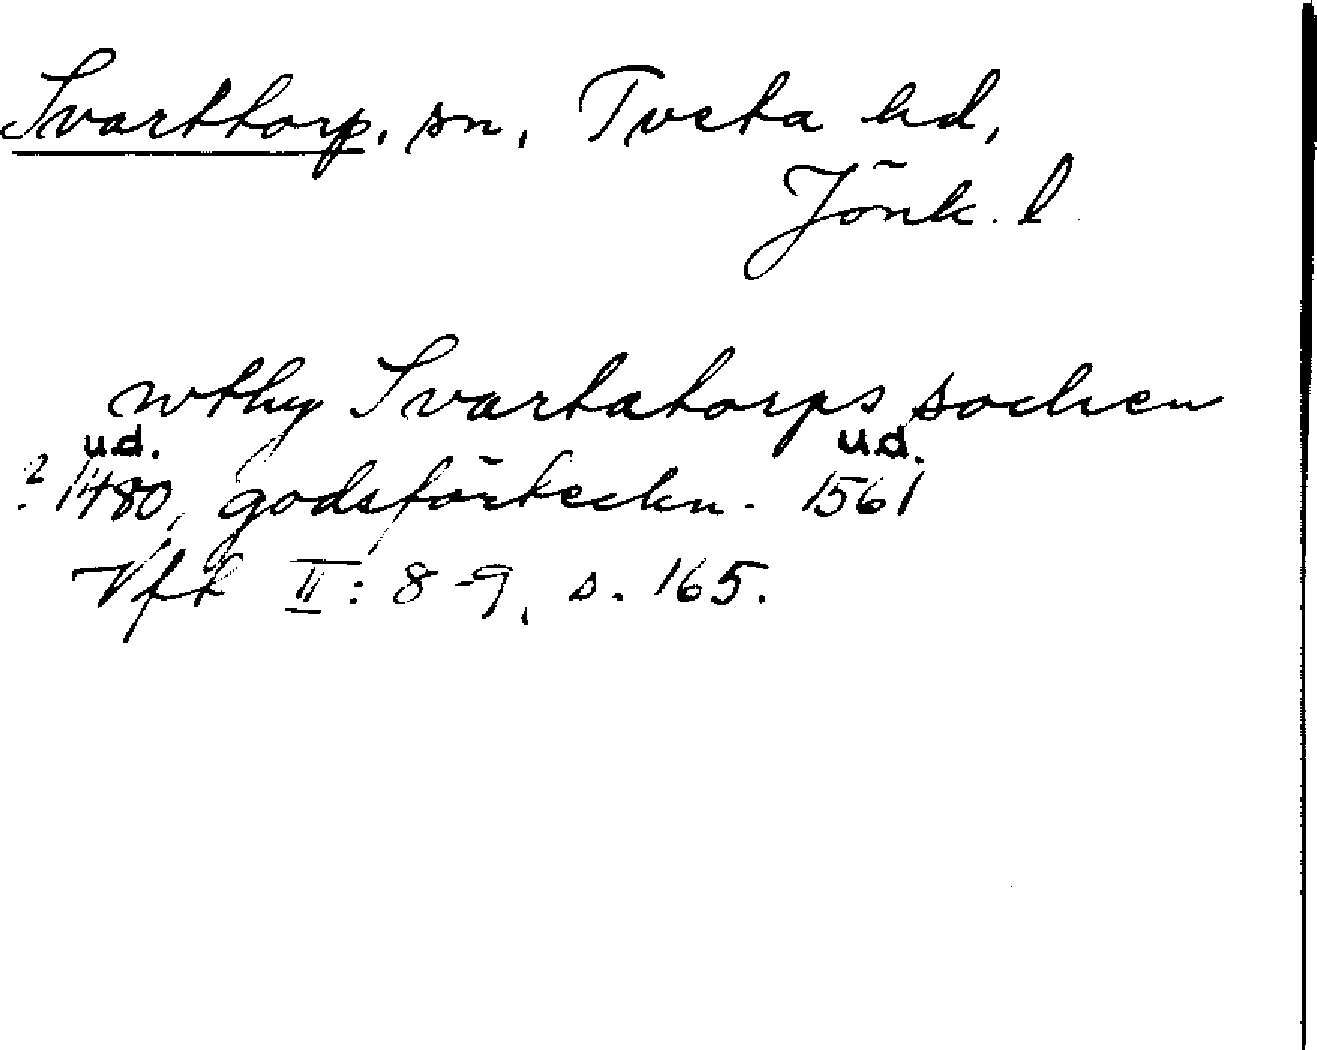 Svarttorp, sn, Tveta hd,
Jönk. l
wthy Svartatorps sochen
u.d. u.d.
? 1480, godsförteckn. 1561
Vfk II: 8-9, s. 165.